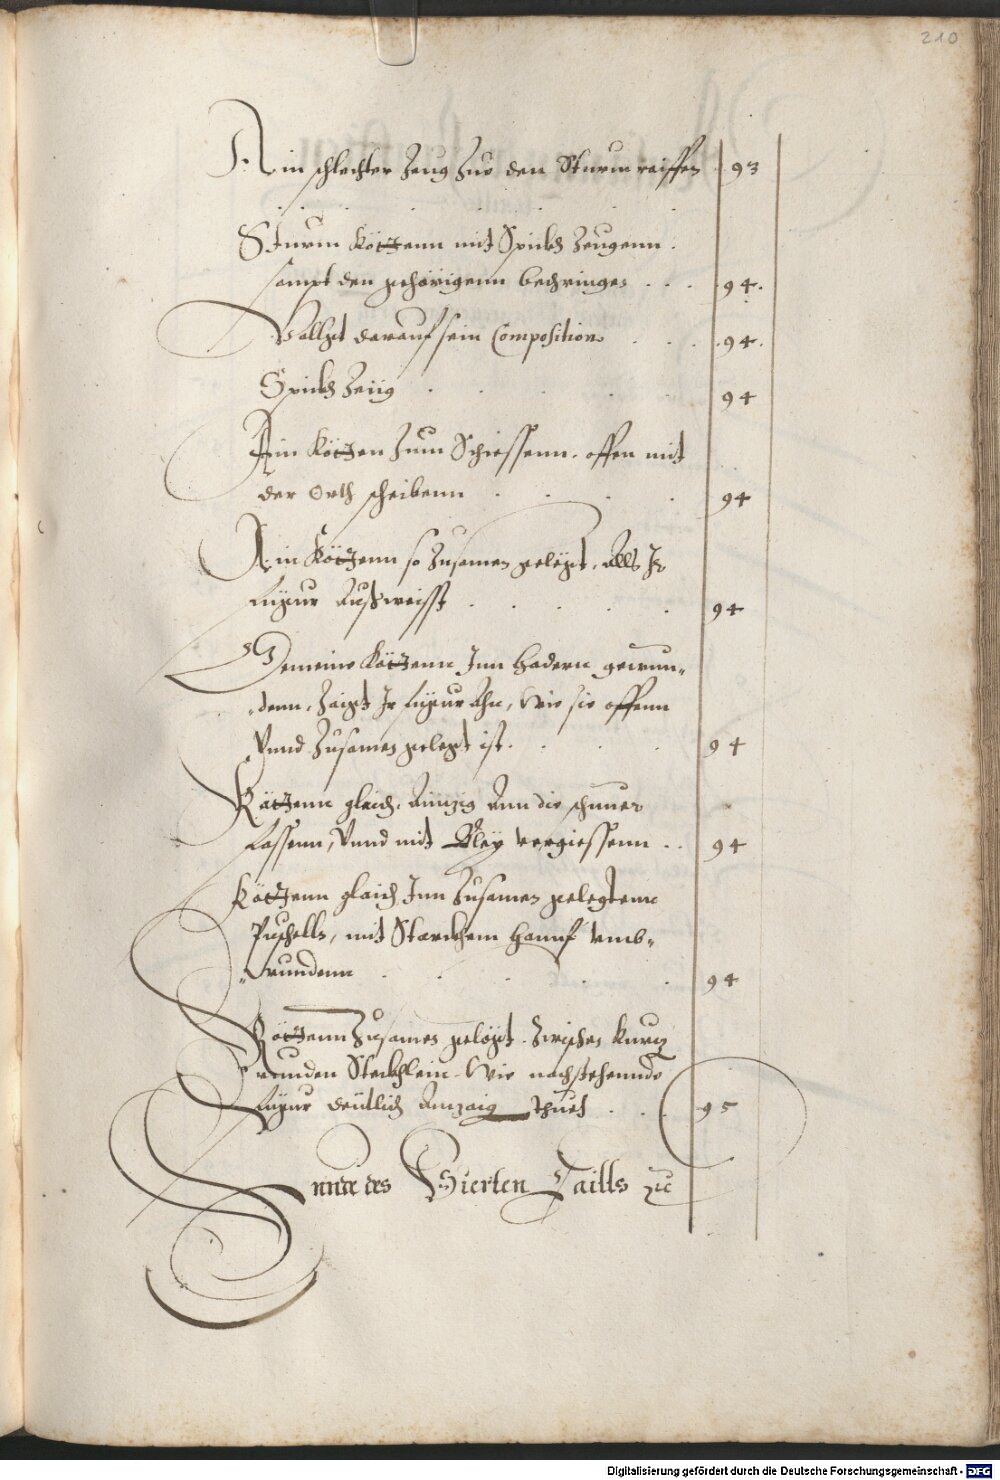 210
Ain schlechter Zeug Zue den Sturmraiffen 93
Sturm Köttenn mit Spickh Zeugenn.
sampt den gehörigenn 94.
darauf sein Composition 94.
Spickh Zeüg 94
Ain Kötten Zum Schiessenn. offen mit
der Orth scheibenn 94
Ain Köttenn so Zusamen gelegt. Alls Ir
Figur Außweisst 94
Gemeine Köttenn Inn Hadern gewun-
-denn, Zaigt Ir Figur Ahn, Wie sie offenn
Vnnd Zusamen gelegt ist. 94
Köttenn gleich, Aintzig Ann die schnuer
Fassenn, Vnnd mit Bley vergiessenn 94
Köttenn gleich Inn Zusamen gelegtenn
Puschells, mit Starckhem Hannf vmb-
-wundenn 94
Köttenn Zusamen gelegt. Zwischen kurtz
runden Steckhlein. Wie nachstehennde
Figur deütlich Anzaig Thuet 95
Ennde des Vierten Taills
Digitalisierung gefördert durch die Deutsche Forschungsgemeinschaft - DFG